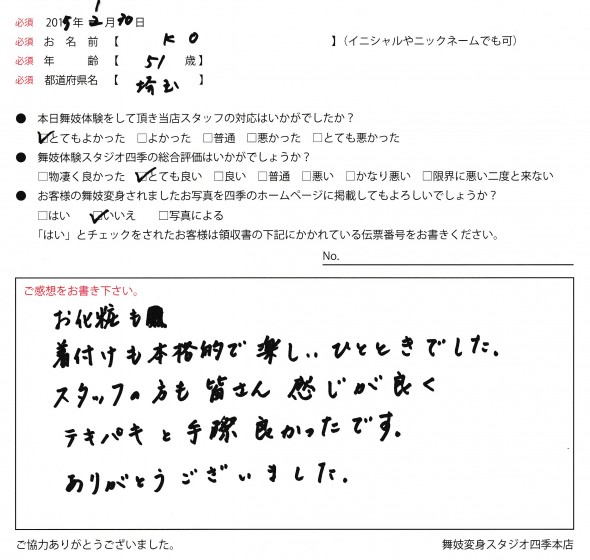 必須 2015年 1月30日
必須 お名前【 K O 】(イニシャルやニックネームでも可)
必須 年齢【 51 歳】
必須 都道府県名【 埼玉 】
● 本日舞妓体験をして頂き当店スタッフの対応はいかがでしたか?
☑とてもよかった □よかった □普通 □悪かった □とても悪かった
● 舞妓体験スタジオ四季の総合評価はいかがでしょうか?
□物凄く良かった ☑とても良い □良い □普通 □悪い □かなり悪い □限界に悪い二度と来ない
● お客様の舞妓変身されましたお写真を四季のホームページに掲載してもよろしいでしょうか?
□はい ☑いいえ □写真による
「はい」とチェックをされたお客様は領収書の下記にかかれている伝票番号をお書きください。
No.
ご感想をお書き下さい。
お化粧も
着付けも本格的で楽しいひとときでした。
スタッフの方も皆さん感じが良く
テキパキと手際良かったです。
ありがとうございました。
ご協力ありがとうございました。 舞妓変身スタジオ四季本店